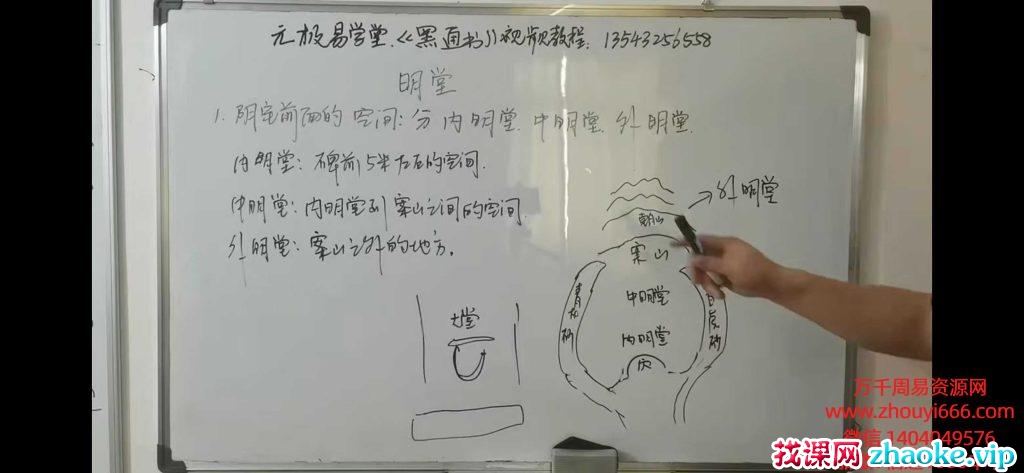 元极易学堂《黑通书》视频教程. 13543256558
明堂
1. 阴宅前面的空间: 分内明堂. 中明堂. 外明堂.
内明堂: 碑前5米左右的空间.
中明堂: 内明堂到案山之间的空间.
外明堂: 案山之外的地方.
外明堂
朝山
案山
青龙砂
白虎砂
中明堂
内明堂
穴
大堂
万千周易资源网
www.zhouyi666.com
微信1404049576
找课网 zhaoke.vip